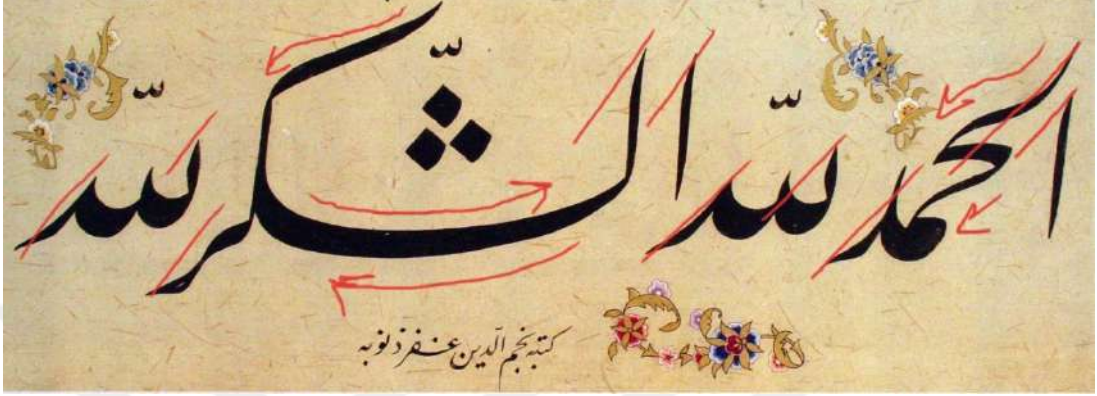 الحمد لله الشّكر لله
كتبه نجم الدّين غفر ذنوبه